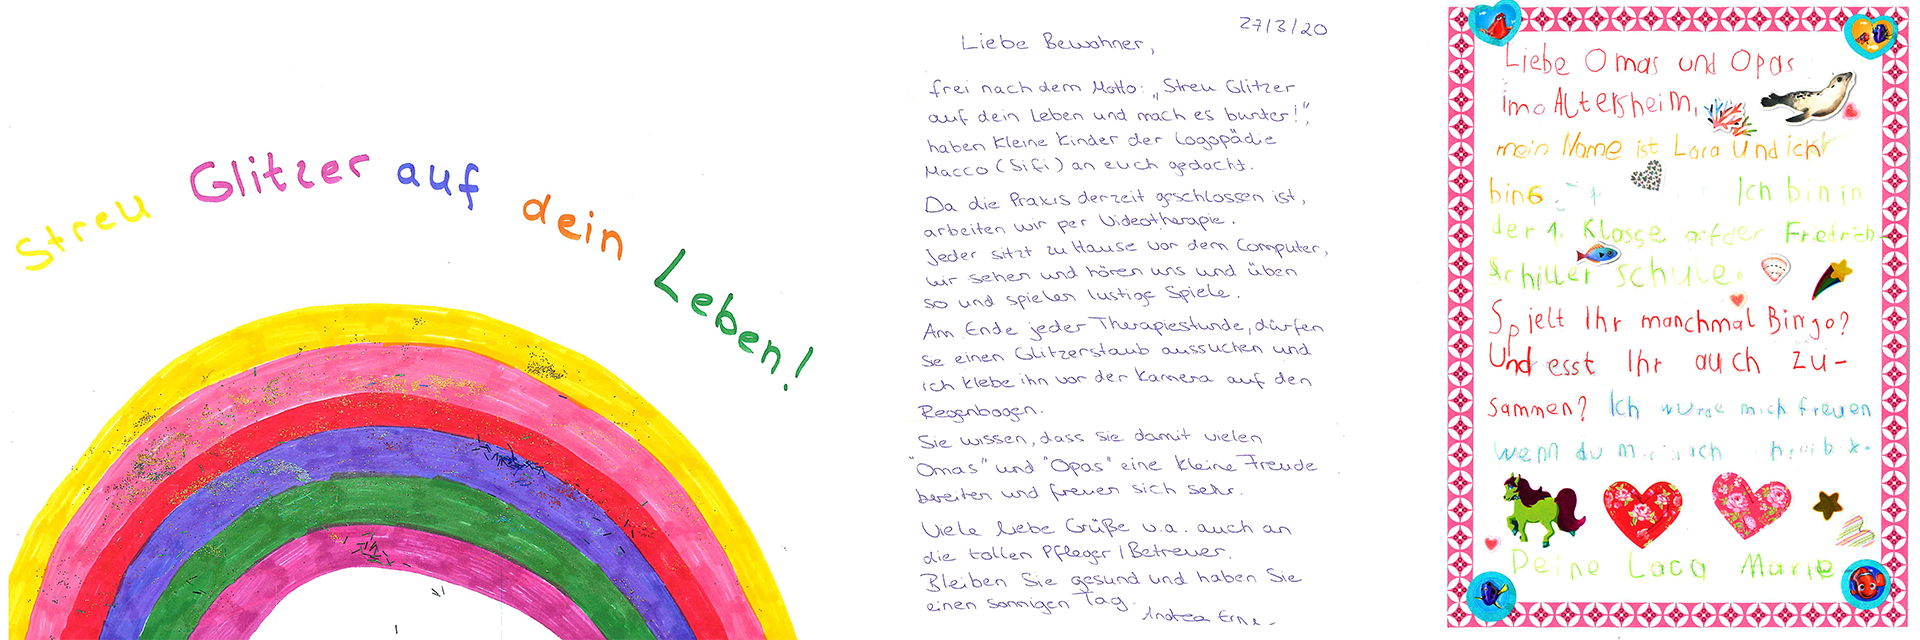 Streu Glitzer auf dein Leben!
27/3/20
Liebe Bewohner,
frei nach dem Motto: „Streu Glitzer
auf dein Leben und mach es bunter!",
haben kleine Kinder der Logopädie
Macco (Sifi) an euch gedacht.
Da die Praxis derzeit geschlossen ist,
arbeiten wir per Videotherapie.
Jeder sitzt zu Hause vor dem Computer,
wir sehen und hören uns und üben
so und spielen lustige Spiele.
Am Ende jeder Therapiestunde, dürfen
sie einen Glitzerstaub aussuchen und
ich klebe ihn vor der Kamera auf den
Regenbogen.
Sie wissen, dass sie damit vielen
"Omas" und "Opas" eine kleine Freude
bereiten und freuen sich sehr.
Viele liebe Grüße v.a. auch an
die tollen Pfleger/Betreuer.
Bleiben Sie gesund und haben Sie
einen sonnigen Tag.
Andrea
Liebe Omas und Opas
im Altersheim,
mein Name ist Laca und ich
bin 6 Ich bin in
der 1. Klasse auf der Friedrich-
Schiller schule.
Spielt Ihr manchmal Bingo?
Und esst Ihr auch zu-
sammen? Ich würde mich freuen
wenn du
Deine Laca Marie